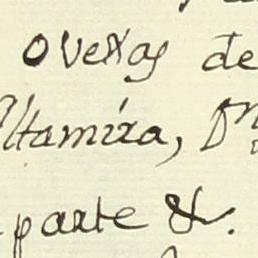 ovexas de
ltamira, Dn
parte &.